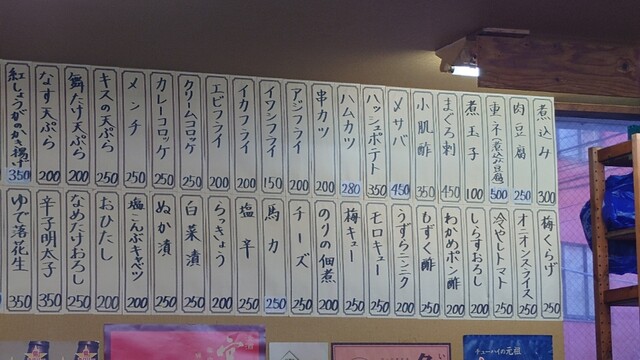 煮込み 300
肉豆腐 250
玉ネ(煮込豆腐 500
煮玉子 100
まぐろ刺 450
小肌酢 350
〆サバ 450
ハッシュポテト 350
ハムカツ 280
串カツ 200
アジフライ 200
イワシフライ 150
イカフライ 200
エビフライ 200
クリームコロッケ 250
カレーコロッケ 250
メンチ 250
キスの天ぷら 250
舞たけ天ぷら 200
なす天ぷら 200
紅しょうがのかき揚げ 350
梅くらげ 250
オニオンスライス 250
冷やしトマト 250
しらすおろし 250
わかめポン酢 200
もずく酢 250
うずらニンニク 200
モロキュー 250
梅キュー 250
のりの佃煮 200
チーズ 250
馬力 250
塩辛 200
らっきょう 200
白菜漬 250
ぬか漬 250
塩こんぶキャベツ 200
おひたし 200
なめたけおろし 250
辛子明太子 350
ゆで落花生 350
チューハイの元祖